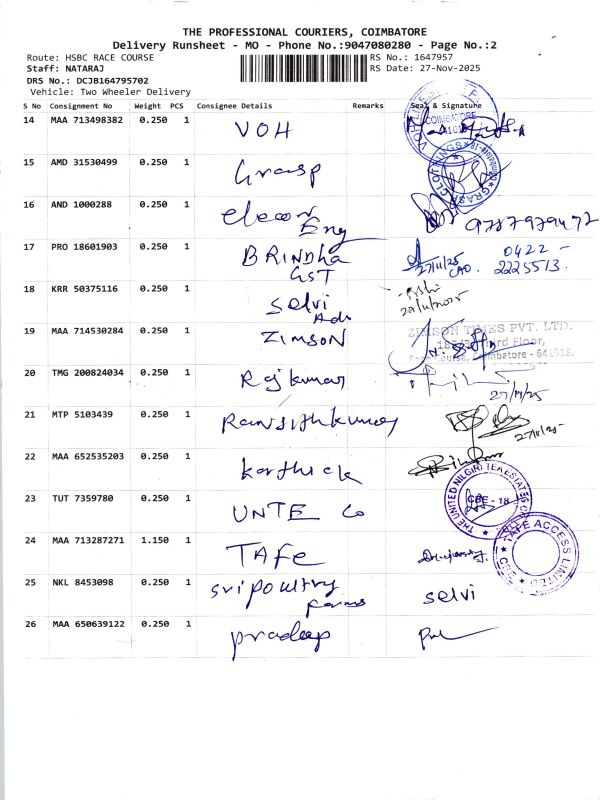 THE PROFESSIONAL COURIERS, COIMBATORE
Delivery Runsheet - MO - Phone No.:9047080280 - Page No.:2
Route: HSBC RACE COURSE
RS No.: 1647957
Staff: NATARAJ
RS Date: 27-Nov-2025
DRS No.: DCJB164795702
Vehicle: Two Wheeler Delivery
S No Consignment No Weight PCS Consignee Details Remarks Seal & Signature
14 MAA 713498382 0.250 1 VOH
COIMBATORE
15 AMD 31530499 0.250 1 Grasp
GRASP CLOTHINGS
16 AND 1000288 0.250 1 elecon
Eng
9787979472
17 PRO 18601903 0.250 1 BRINDHA
GST
27/11/25
CAO.
0422 -
2225513.
18 KRR 50375116 0.250 1 Selvi
Ads
19 MAA 714530284 0.250 1 ZIMSON
ZIMSON TIMES PVT. LTD.
Third Floor,
Coimbatore - 641018.
20 TMG 200824034 0.250 1 Rajkumar
27/11/25
21 MTP 5103439 0.250 1 Ransithkumar
27/11/25
22 MAA 652535203 0.250 1 karthick
23 TUT 7359780 0.250 1 UNTE Co
THE UNITED NILGIRI TEA ESTATES CO
CBE - 18
24 MAA 713287271 1.150 1 TAFe
TAFE ACCESS LIMITED
25 NKL 8453098 0.250 1 sri poultry
farms
selvi
26 MAA 650639122 0.250 1 pradeep